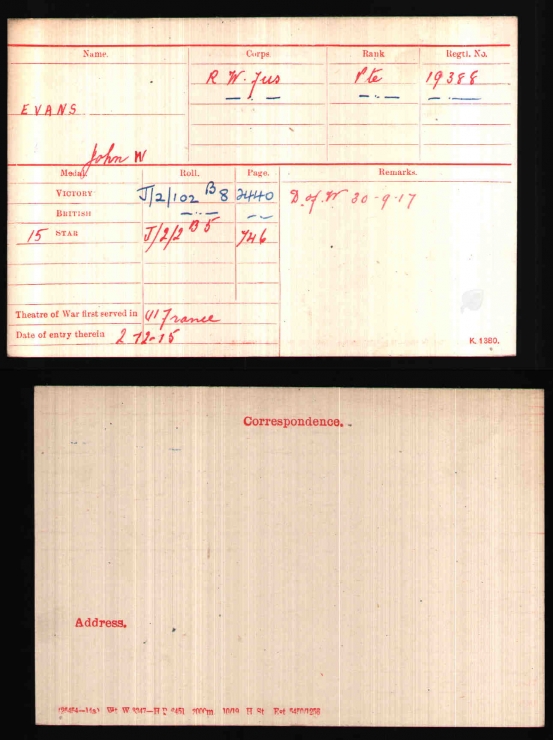 Name. Corps. Rank Regtl. No.
R W. Fus Pte 19388
— . — — . — — . —
EVANS
John W
Medal. Roll. Page. Remarks.
VICTORY J/2/102 B 8 2440 D. of W 30-9-17
BRITISH — . — — —
15 STAR J/2/2 B 5 746
Theatre of War first served in (1) France
Date of entry therein 2-12-15
K. 1380.
Correspondence.
Address.
(26454—14a) Wt W 3247—H P 6451 1000m 10/19 H St